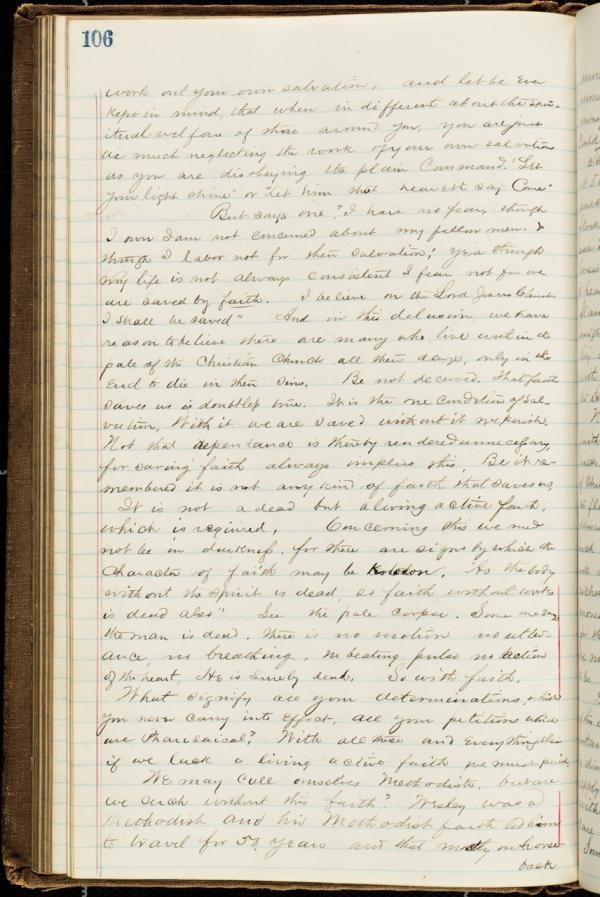 106
work out your own salvation. and let be ever
kept in mind, that when indifferent about the spir-
itual welfare of those around you, you are just
as much neglecting the work of your own salvation
as you are disobeying the plain Command. "Let
your light shine" or "Let him that heareth say Come"
But says one "I have no fear, though
I own I am not concerned about my fellow men. &
though I labor not for their salvation; yea though
my life is not always consistent I fear not for we
are saved by faith. I believe on the Lord Jesus Christ
I shall be saved" And in this delusion we have
reason to believe there are many who live within the
pale of the Christian Church all their days, only in the
end to die in their sins. Be not deceived. That faith
saves us is doubtless true. It is the one condition of sal-
vation, With it we are saved without it we perish.
Not that repentance is thereby rendered unnecessary,
for saving faith always implies this. Be it re-
membered it is not any kind of faith that saves us.
It is not a dead but a living active faith,
which is required. Concerning this we need
not be in darkness. for there are signs by which the
character of faith may be known. "As the body
without the spirit is dead, so faith without works
is dead also" See the pale corpse. Some one says
the man is dead. there is no motion no utter-
ance, no breathing, no beating pulse no action
of the heart, He is surely dead. So with faith.
What signify all your determinations, which
you never carry into effect, all your petitions which
are Pharisaical? With all these and everything else
if we lack a living active faith we must perish
We may call ourselves Methodists, but are
we such without this faith? Wesley was a
Methodist and his Methodist faith led him
to travel for 50 years and that mostly on horse-
back